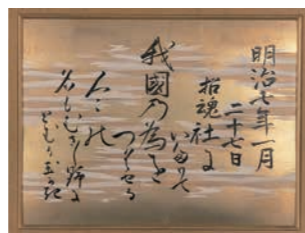 明治七年一月
二十七日
招魂社に
いたりて
我國の為を
つくせる
人々の
名もむさし野に
とむる玉かき